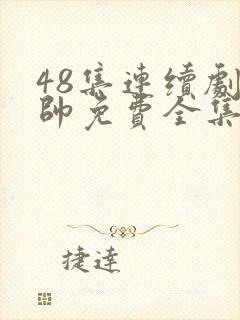 48集連續劇
帥免費全集
捷達